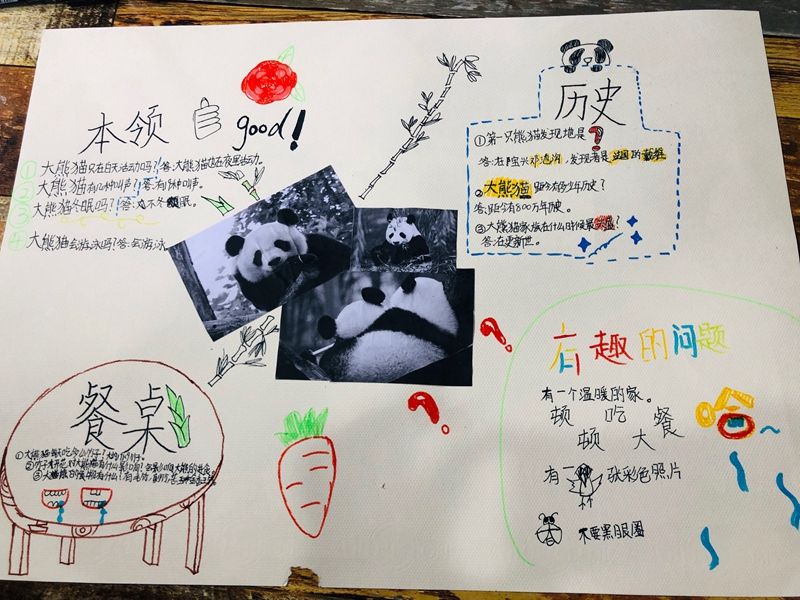 本领 good!
① 大熊猫只在白天活动吗?答:大熊猫也在夜里活动。
② 大熊猫有几种叫声?答:有 种叫声。
③ 大熊猫冬眠吗?答: 不冬眠。
④ 大熊猫会游泳吗?答:会游泳
历史
① 第一只大熊猫发现地是?
答:在 宝兴邓池沟,发现者是法国的
② 大熊猫距今有多少年历史?
答:距今有800万年历史。
③ 大熊猫家族在什么时候最 盛?
答:在更新世。
餐桌
① 大熊猫 吃 竹子?
② 竹子开花对大熊猫有什么影响?
③ 大熊猫
有趣的问题
有一个温暖的家。
顿 吃 餐
顿 大
哈
有一 张彩色照片
不要黑眼圈